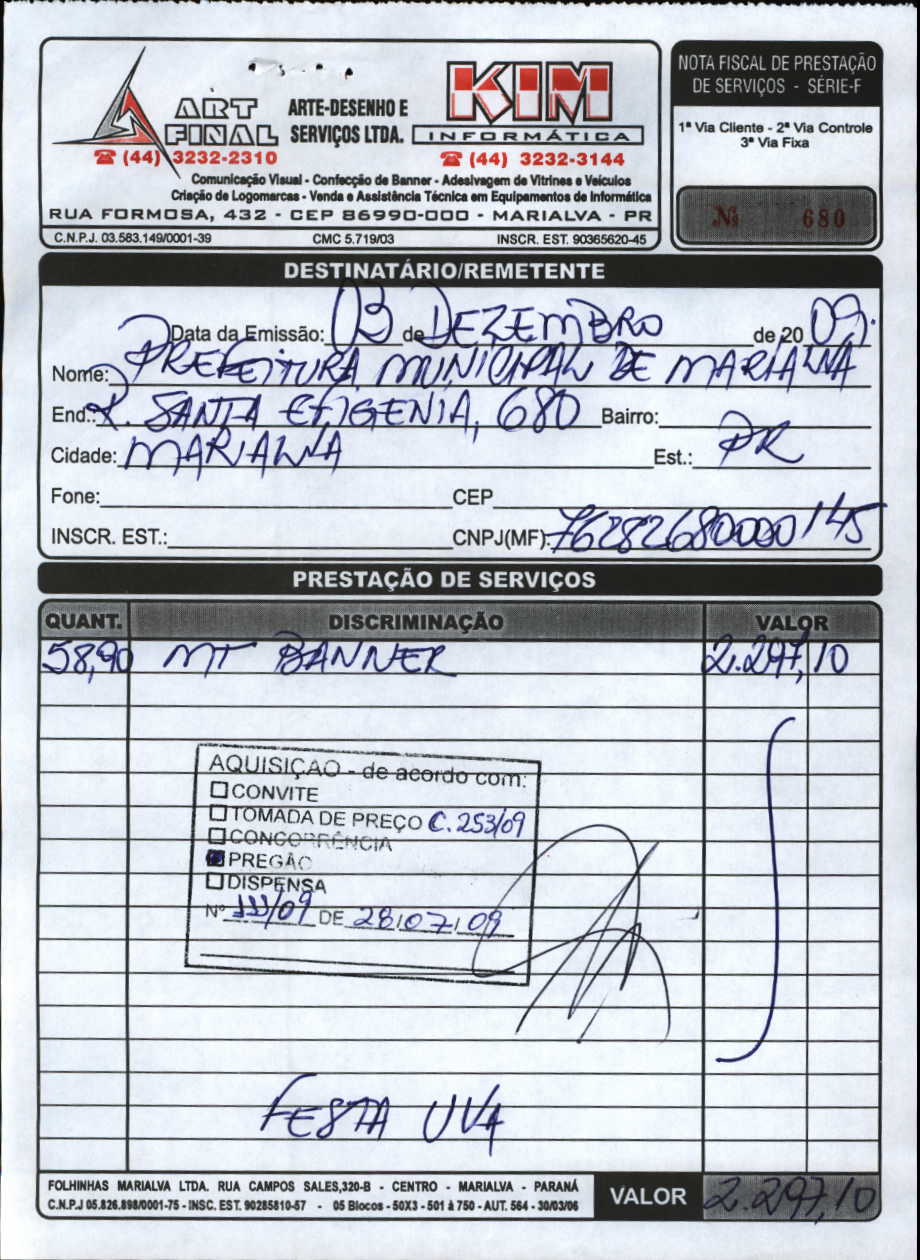 ART FINAL
ARTE-DESENHO E SERVIÇOS LTDA.
KIM INFORMÁTICA
☎ (44) 3232-2310
☎ (44) 3232-3144
Comunicação Visual - Confecção de Banner - Adesivagem de Vitrines e Veiculos
Criação de Logomarcas - Venda e Assistência Técnica em Equipamentos de Informática
RUA FORMOSA, 432 - CEP 86990-000 - MARIALVA - PR
C.N.P.J. 03.583.149/0001-39 CMC 5.719/03 INSCR. EST. 90365620-45
NOTA FISCAL DE PRESTAÇÃO
DE SERVIÇOS - SÉRIE-F
1ª Via Cliente - 2ª Via Controle
3ª Via Fixa
Nº 680
DESTINATÁRIO/REMETENTE
Data da Emissão: 03 de DEZEMBRO de 2009.
Nome: PREFEITURA MUNICIPAL DE MARIALVA
End.: R. SANTA EFIGENIA, 680 Bairro:
Cidade: MARIALVA Est.: PR
Fone: CEP
INSCR. EST.: CNPJ(MF): 76282680000145
PRESTAÇÃO DE SERVIÇOS
QUANT. DISCRIMINAÇÃO VALOR
58,90 MT BANNER 2.297,10
AQUISIÇÃO - de acordo com:
CONVITE
TOMADA DE PREÇO C. 253/09
CONCORRÊNCIA
PREGÃO
DISPENSA
Nº 111/09 DE 28/07/09
FESTA UVA
FOLHINHAS MARIALVA LTDA. RUA CAMPOS SALES,320-B - CENTRO - MARIALVA - PARANÁ
C.N.P.J 05.826.898/0001-75 - INSC. EST. 90285810-57 - 05 Blocos - 50X3 - 501 à 750 - AUT. 564 - 30/03/06
VALOR 2.297,10